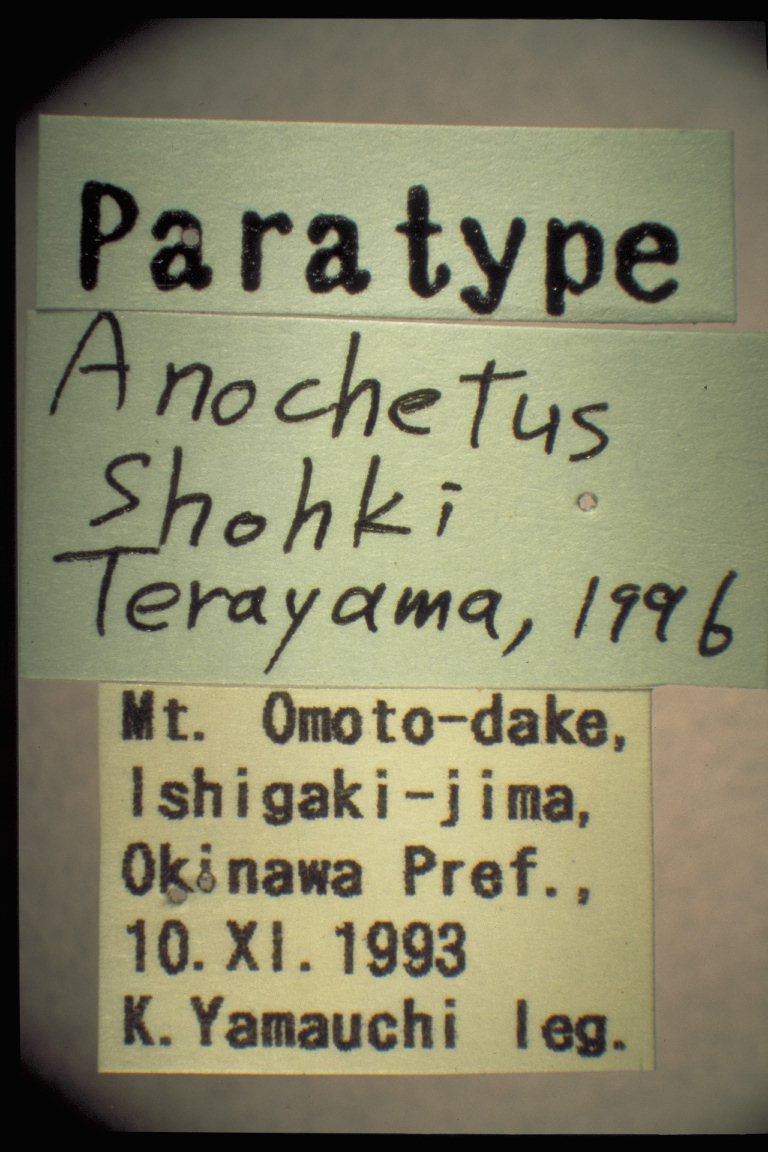 Paratype
Anochetus
shohki
Terayama, 1996
Mt. Omoto-dake,
Ishigaki-jima,
Okinawa Pref.,
10.XI.1993
K.Yamauchi leg.